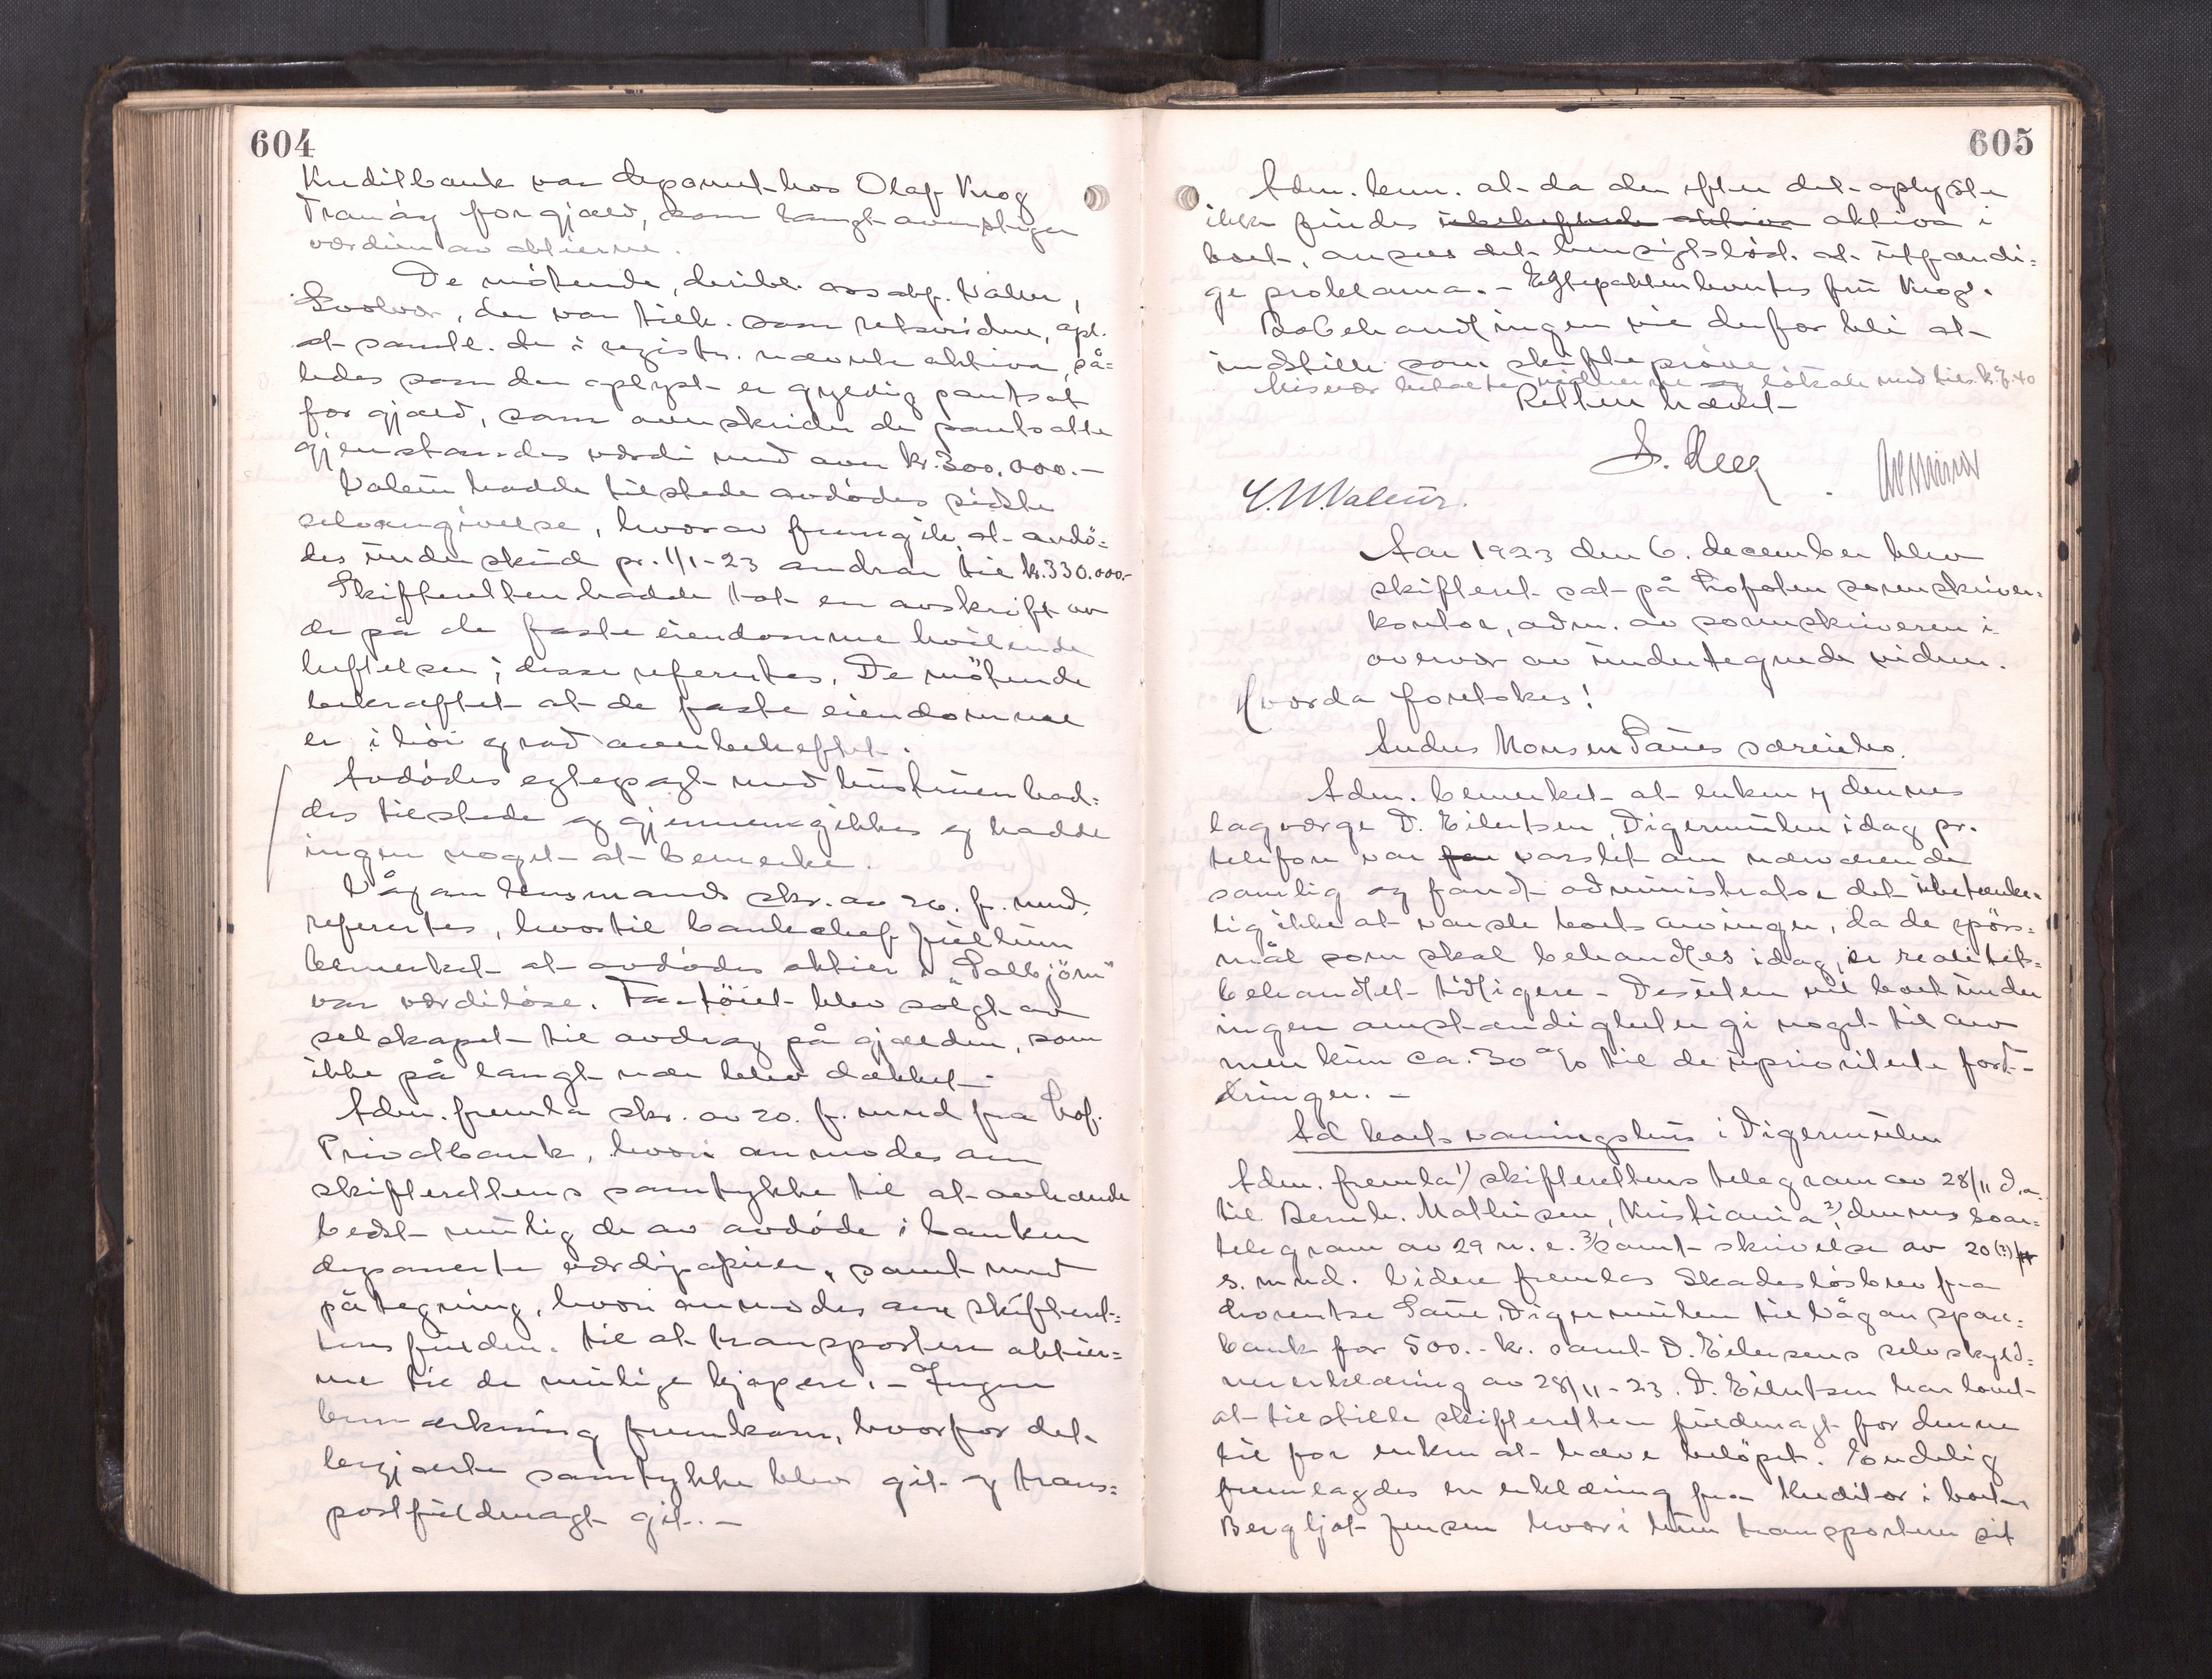 604
Kreditbank var deponert hos Olaf Krog
Tranøy for gjæld, som langt overstiger
værdien av aktierne.
De møtende, deribl. Valeur,
Svolvær, der var tilk. som retsvidne, opl.
at samtl. de i registr. nævnte aktiva, så=
ledes som der oplyst er gyldig pantsat
for gjæld, som overskrider de pantsatte
gjenstandes værdi med over kr. 300.000.-
Valeur hadde tilstede avdødes sidste
selvangivelse, hvorav fremgik, at avdø=
des underskud pr. 1/1-23 androg til kr. 330.000.-
Skifteretten hadde tat en avskrift av
de på de faste eiendomme hvilende
heftelser; disse refertes. De møtende
bekræftet at de faste eiendomme
er i høi grad overbeheftet.
Avdødes egtepagt med hustruen had=
des tilstede og gjennemgikkes og hadde
ingen noget at bemerke.
Vågan lensmands skr. av 26. f. mnd.
refertes, hvortil bankchef Juellum
bemerket at avdødes aktier i "Solbjørn"
var værdiløse. Fartöiet blev solgt av
selskapet til avdrag på gjælden, som
ikke på langt nær blev dækket.
Adm. fremla skr. av 20. f. mnd fra Lof.
Privatbank, hvori anmodes om
skifterettens samtykke til at avhænde
bedst mulig de av avdøde i banken
deponerte værdipapirer, samt med
påtegning, hvori anmodes om skifteret=
tens fuldm. til at transportere aktier=
ne til de mulige kjøpere. - Ingen
bemærkning fremkom, hvorfor det
begjærte samtykke blev git og trans=
portfuldmagt git. -
605
Adm. kem. at da der efter det oplyste
ikke findes ubeheftede aktiva aktiva i
boet, ansees det hensigtsløst at utfærdi=
ge proklama. - Egtepakten leveertes fru Krog.
Bobehandlingen vil derfor bli at
indstille som skifteprøve.
Misvær betalte vidnerne og lokale med tils. kr. 7.40
Rettten hævet
Aar 1923 den 6. december blev
skifteret sat på Lofoten sorenskriver=
kontor, adm. av sorenskriveren i
overvær av undertegnede vidner.
Hvorda foretokes:
Anders Monsen Saues særeiebo.
Adm. bemerket at enken og dennes
lagværge D. Eilertsen, Digermulen idag pr.
telefon var for varslet om nærværende
samling og fandt administrator det ubetænke=
lig ikke at varsle boets arvinger, da de spørs=
mål som skal behandles idag, er realitets=
behandlet tidligere - Desuten vil boet under
ingen omstændigheter gi noget til arv
men kun ca. 30 % til de uprioriterte ford=
dringer. -
Ad boets vaaningshus i Digermulen
Adm. fremla 1) skifterettens telegram av 28/11 d.a.
til Bernh. Mathisen, Kristiania 2) dennes svar=
telegram av 29 n. e. 3) samt skrivelse av 20(?)
s. mnd. Videre fremlas Skadesløsbrev fra
Lorentse Saue, Digermulen til Vågan spare=
bank for 500.- kr. samt D. Eilersens selvskyld=
nererklæring av 28/11-23. D. Eilertsen har lovet
at tilstille skifteretten fuldmagt for denne
til for enken at hæve beløpet. Endelig
fremlagdes en erklæring fra Kreditor i boet
Bergljot Jensen hvori hun transporterer sit